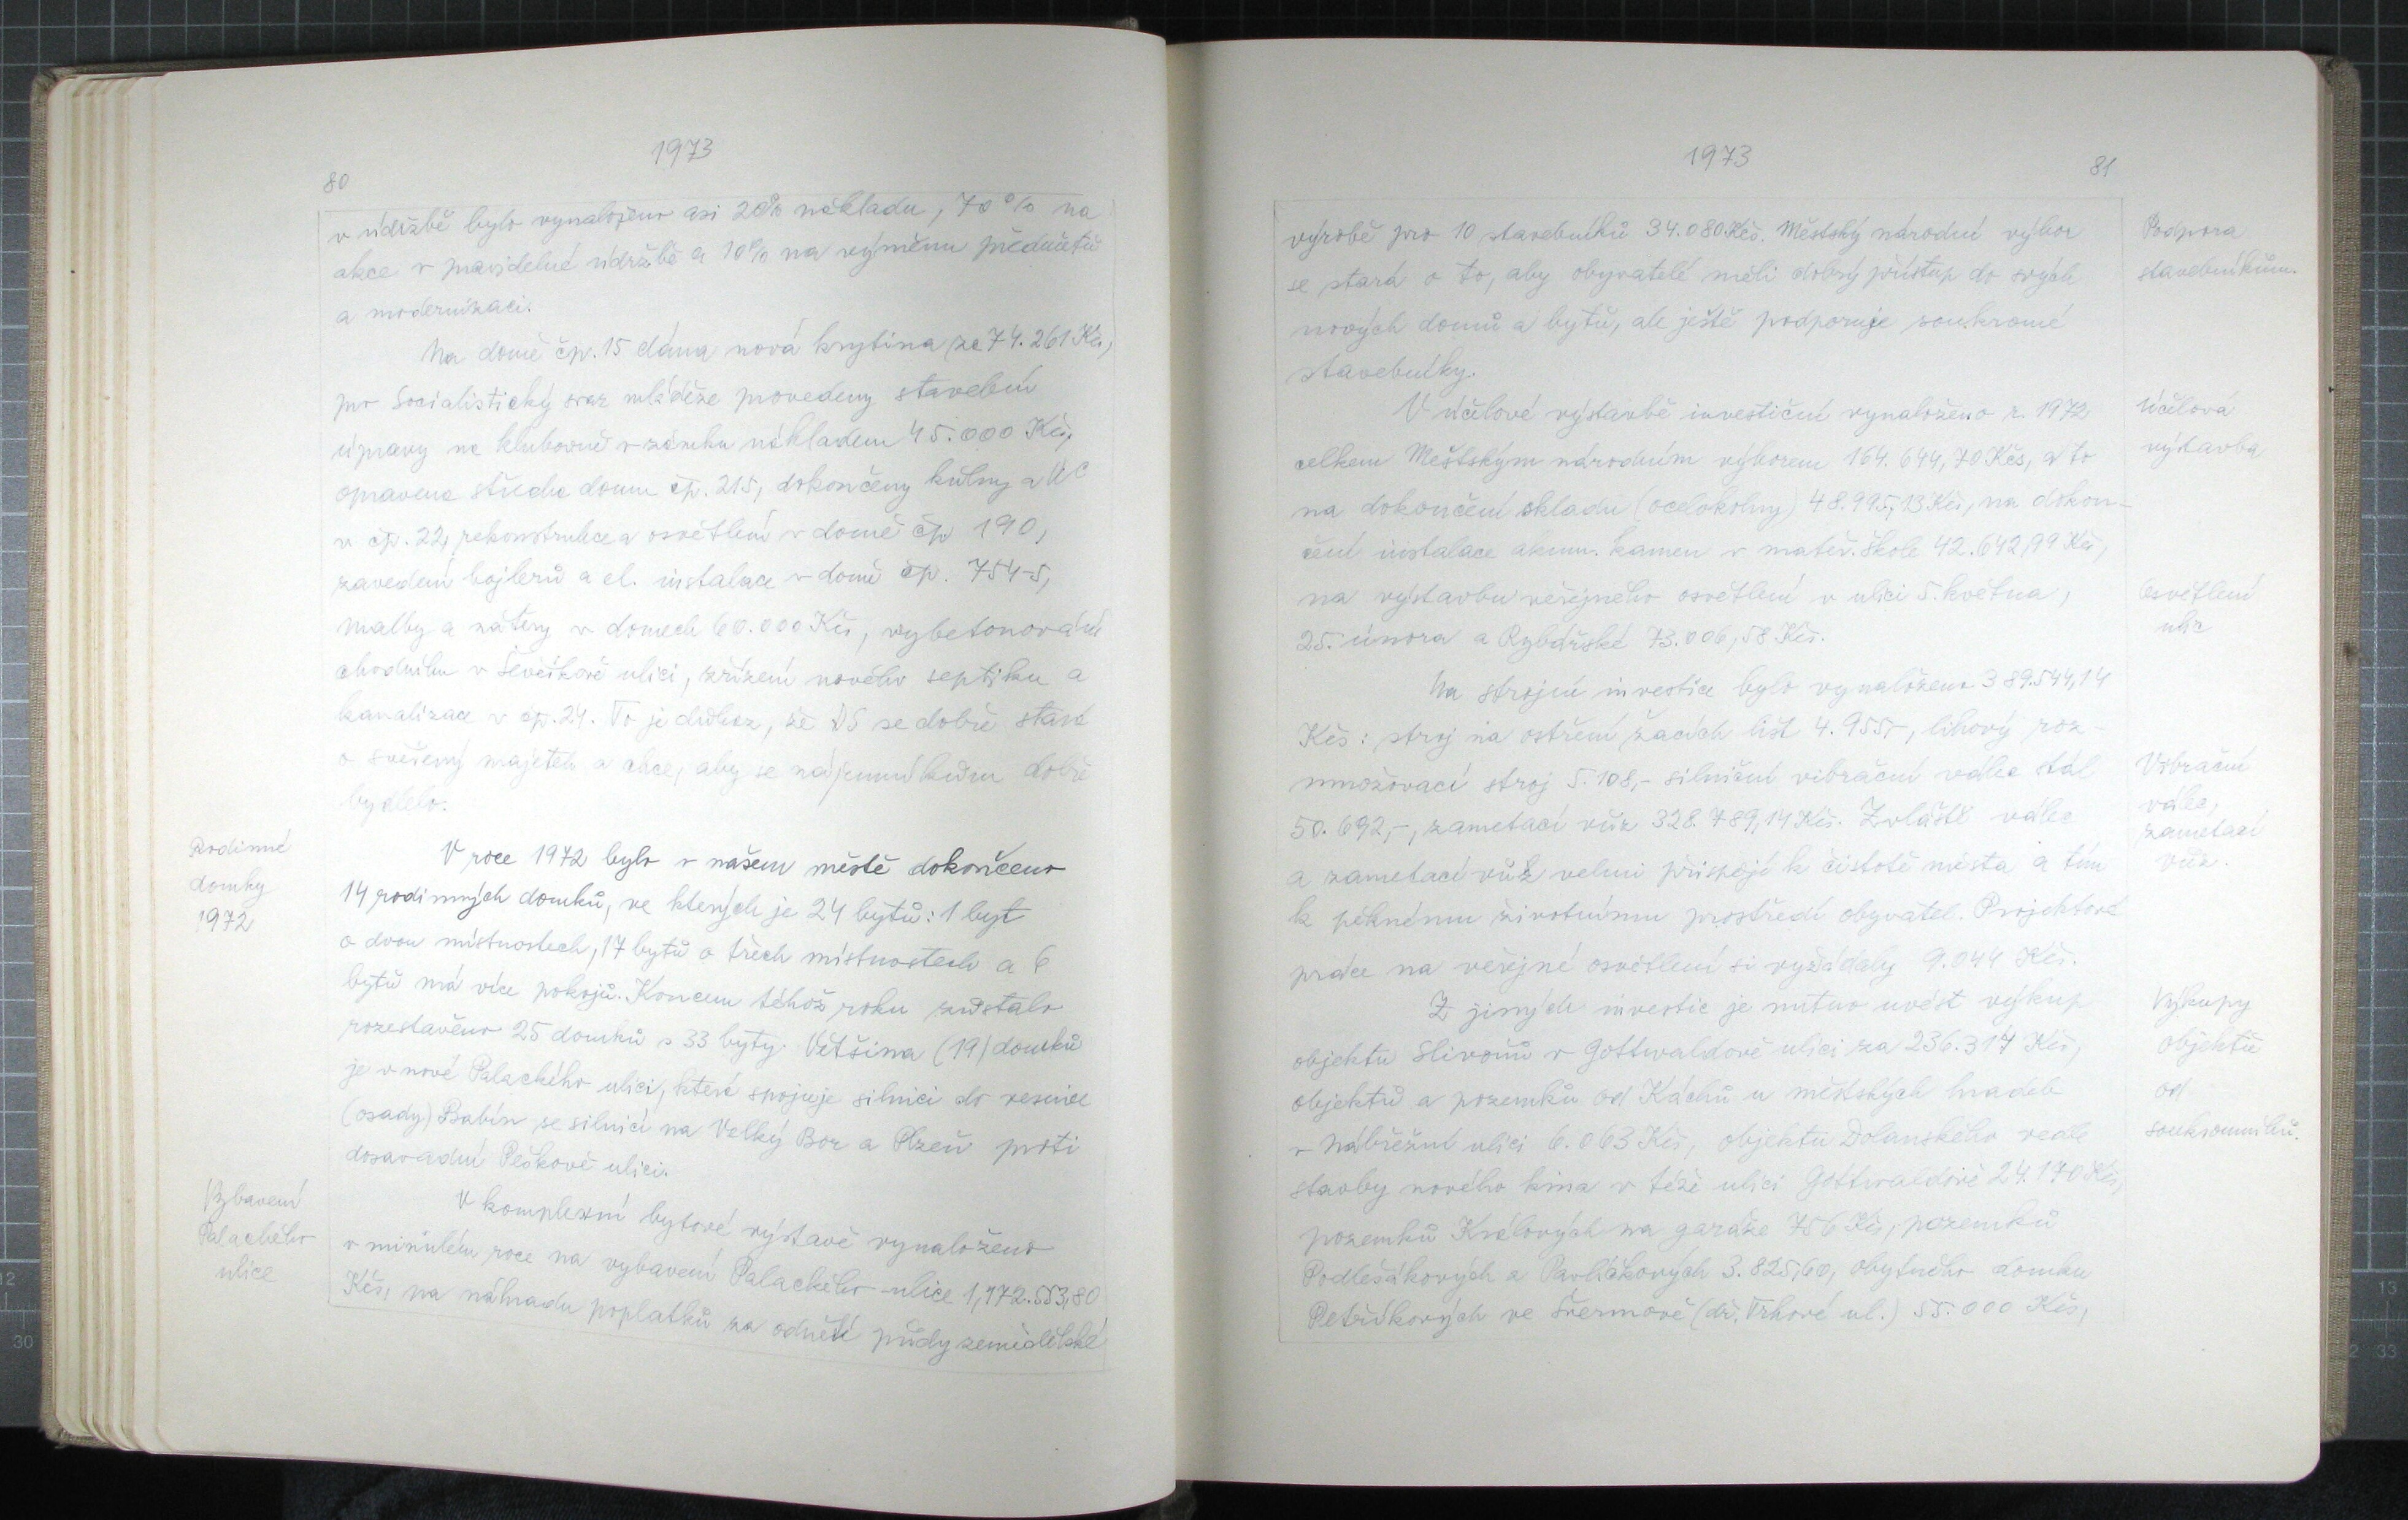 1973
80
v údržbě bylo vynaloženo asi 20% nákladu, 70% na
akce v pravidelné údržbě a 10% na výměnu předmětů
a modernizaci.
Na domě čp. 15 dána nová krytina za 74.261 Kčs,
pro Socialistický svaz mládeže provedeny stavební
úpravy na klubovně v zámku nákladem 45.000 Kčs,
opravena střecha domu čp. 215, dokončeny kůlny a WC
v čp. 22, rekonstrukce a osvětlení v domě čp. 190,
zavedení bojlerů a el. instalace v domě čp. 754-5,
malby a nátěry v domech 60.000 Kčs, vybetonování
chodníku v Ševčíkově ulici, zřízení nového septiku a
kanalizace v čp. 24. To je důkaz, že DS se dobře stará
o svěřený majetek a chce, aby se nájemníkům dobře
bydlelo.
Rodinné
domky
1972
V roce 1972 bylo v našem městě dokončeno
14 rodinných domků, ve kterých je 24 bytů: 1 byt
o dvou místnostech, 17 bytů o třech místnostech a 6
bytů má více pokojů. Koncem téhož roku zůstalo
rozestavěno 25 domků s 33 byty. Většina (19) domků
je v nové Palackého ulici, která spojuje silnici do vesnice
(osady) Babín se silnicí na Velký Bor a Plzeň proti
dosavadní Peškově ulici.
Vybavení
Palackého
ulice
V komplexní bytové výstavě vynaloženo
v minulém roce na vybavení Palackého ulice 1,172.553,80
Kčs, na náhradu poplatků za odnětí půdy zemědělské
1973
81
výrobě pro 10 stavebníků 34.080 Kčs. Městský národní výbor
se stará o to, aby obyvatelé měli dobrý přístup do svých
nových domů a bytů, ale ještě podporuje soukromé
stavebníky.
Podpora
stavebníkům.
V účelové výstavbě investiční vynaloženo r. 1972
celkem Městským národním výborem 164.644,70 Kčs, a to
na dokončení skladu (ocelokolny) 48.995,13 Kčs, na dokon-
čení instalace akum. kamen v mateř. škole 42.642,99 Kčs,
na výstavbu veřejného osvětlení v ulici 5. května,
25. února a Rybářské 73.006,58 Kčs.
Účelová
výstavba
Osvětlení
ulic
Na strojní investice bylo vynaloženo 389.544,14
Kčs: stroj na ostření žacích lišt 4.955,-, lihový roz-
množovací stroj 5.108,- silniční vibrační válec stál
50.692,-, zametací vůz 328.789,14 Kčs. Zvláště válec
a zametací vůz velmi přispějí k čistotě města a tím
k pěknému životnímu prostředí obyvatel. Projektové
práce na veřejné osvětlení si vyžádaly 9.044 Kčs.
Vibrační
válec,
zametací
vůz.
Z jiných investic je nutno uvést výkup
objektu Slivoňů v Gottwaldově ulici za 236.317 Kčs,
objektů a pozemků od Káchů u městských hradeb
v Nábřežní ulici 6.063 Kčs, objektu Dolanského vedle
stavby nového kina v téže ulici Gottwaldově 24.170 Kčs,
pozemků Králových na garáže 756 Kčs, pozemků
Podlešákových a Pavlíčkových 3.825,60, obytného domku
Petříkových ve Švermově (dř. Trhové ul.) 55.000 Kčs,
Výkupy
objektů
od
soukromníků.